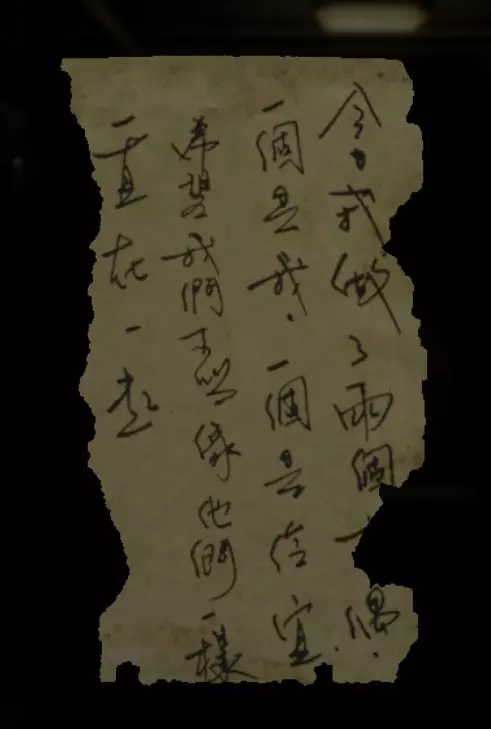 今日我做了兩個木偶,
一個是我,一個是信宜.
希望我們可以像他們一樣
一直在一起